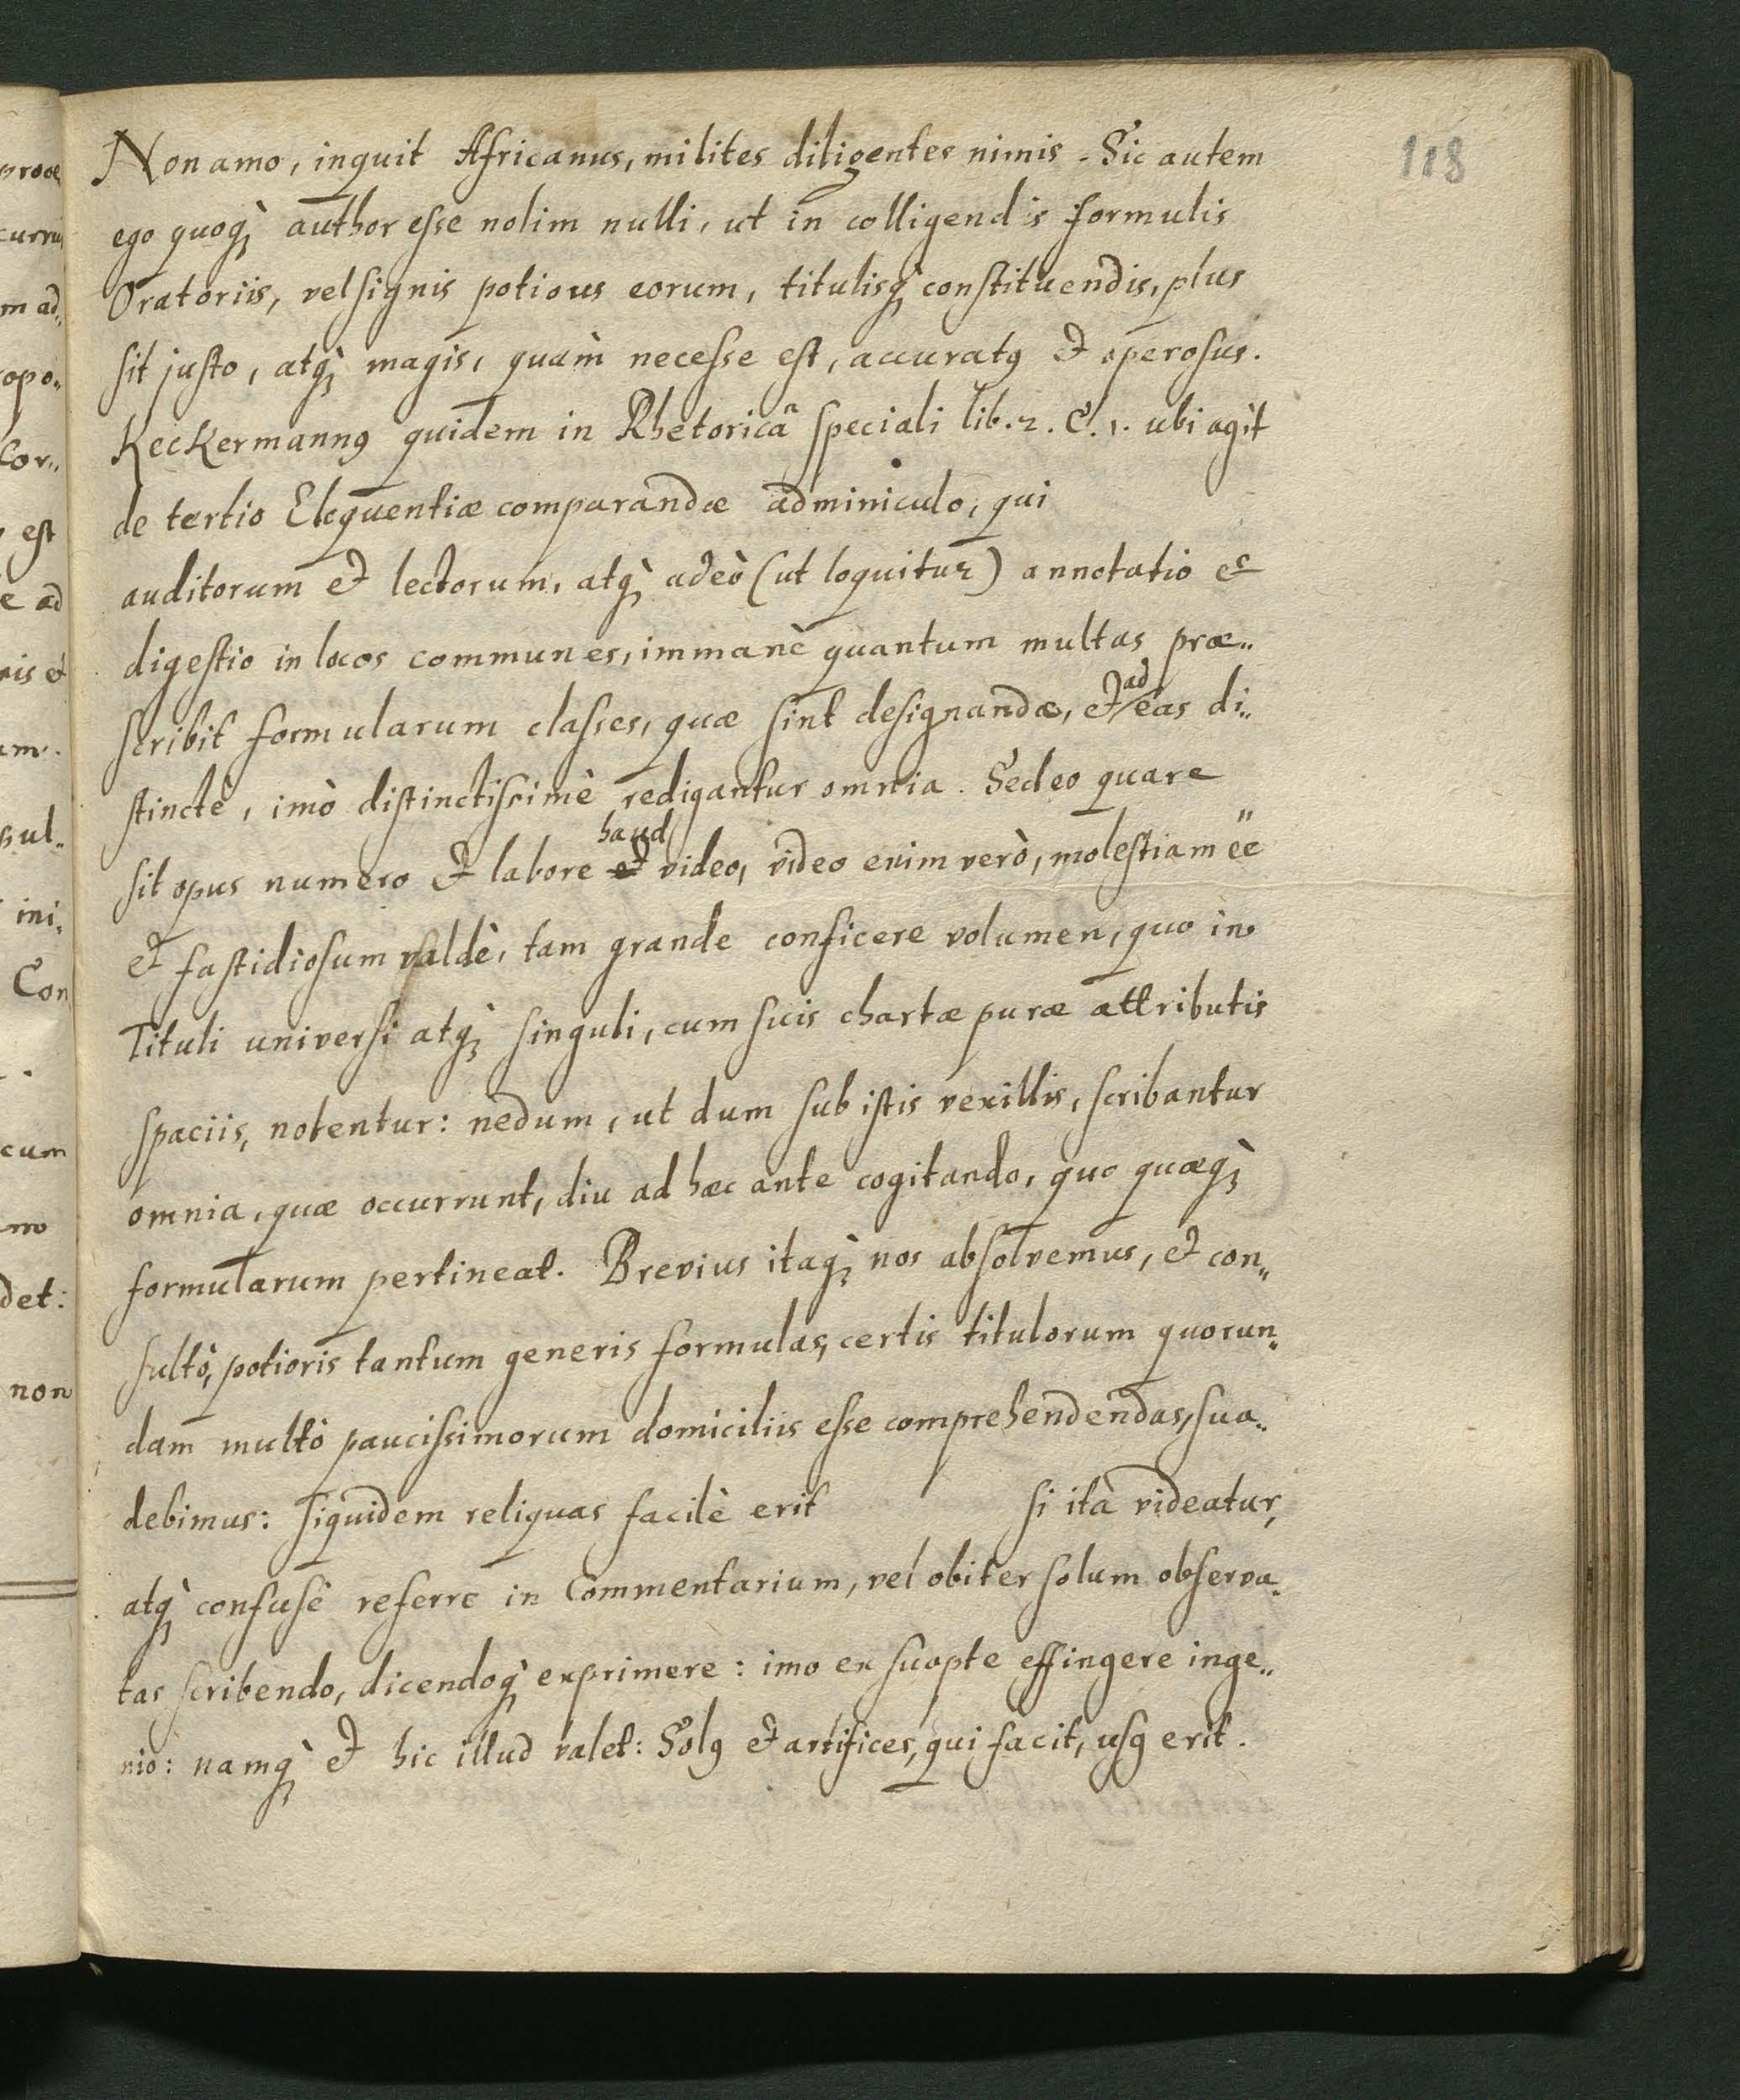 118
Non amo, inquit Africanus, milites diligentes nimis. Sic autem
ego quoq; author esse nolim nulli, ut in colligendis formulis
Oratoriis, vel signis potious eorum, titulisq; constituendis, plus
sit justo, atq; magis, quàm necesse est, accuratꝰ et operosus.
Keckermannꝰ quidem in Rhetoricâ speciali lib. 2. C. 1. ubi agit
de tertio Eloquentiæ comparandæ adminiculo, qui
auditorum et lectorum, atq; adeò (ut loquitur) annotatio et
digestio in locos communes, immanè quantum multas præ„
scribit formularum classes, quæ sint designandæ, et ad eas di„
stinctè, imò distinctissimè redigantur omnia. Sed eo quare
sit opus numero et labore haud video, video enim verò, molestiam ee
et fastidiosum valdè, tam grande conficere volumen, quo in
Tituli universi atq; singuli, cum suis chartæ puræ attributis
spaciis, notentur: nedum, ut dum sub istis vexillis, scribantur
omnia, quæ occurrunt, diu ad hæc ante cogitando, quo quæq;
formularum pertineat. Brevius itaq; nos absolvemus, et con„
sultò, potioris tantum generis formulas, certis titulorum quorun„
dam multò paucissimorum domiciliis esse comprehendendas, sua„
debimus: siquidem reliquas facilè erit si ità videatur,
atq; confusè referre in Commentarium, vel obiter solum observa„
tas scribendo, dicendoq; exprimere: imo ex suopte effingere inge„
nio: namq; et hic illud valet: Solꝰ et artifices, qui facit, usꝰ erit.
proce
curru
m ad„
opo„
Cor„
est
e ad
nis et
um.
sul„
ini„
Con
cum
mo
det:
non